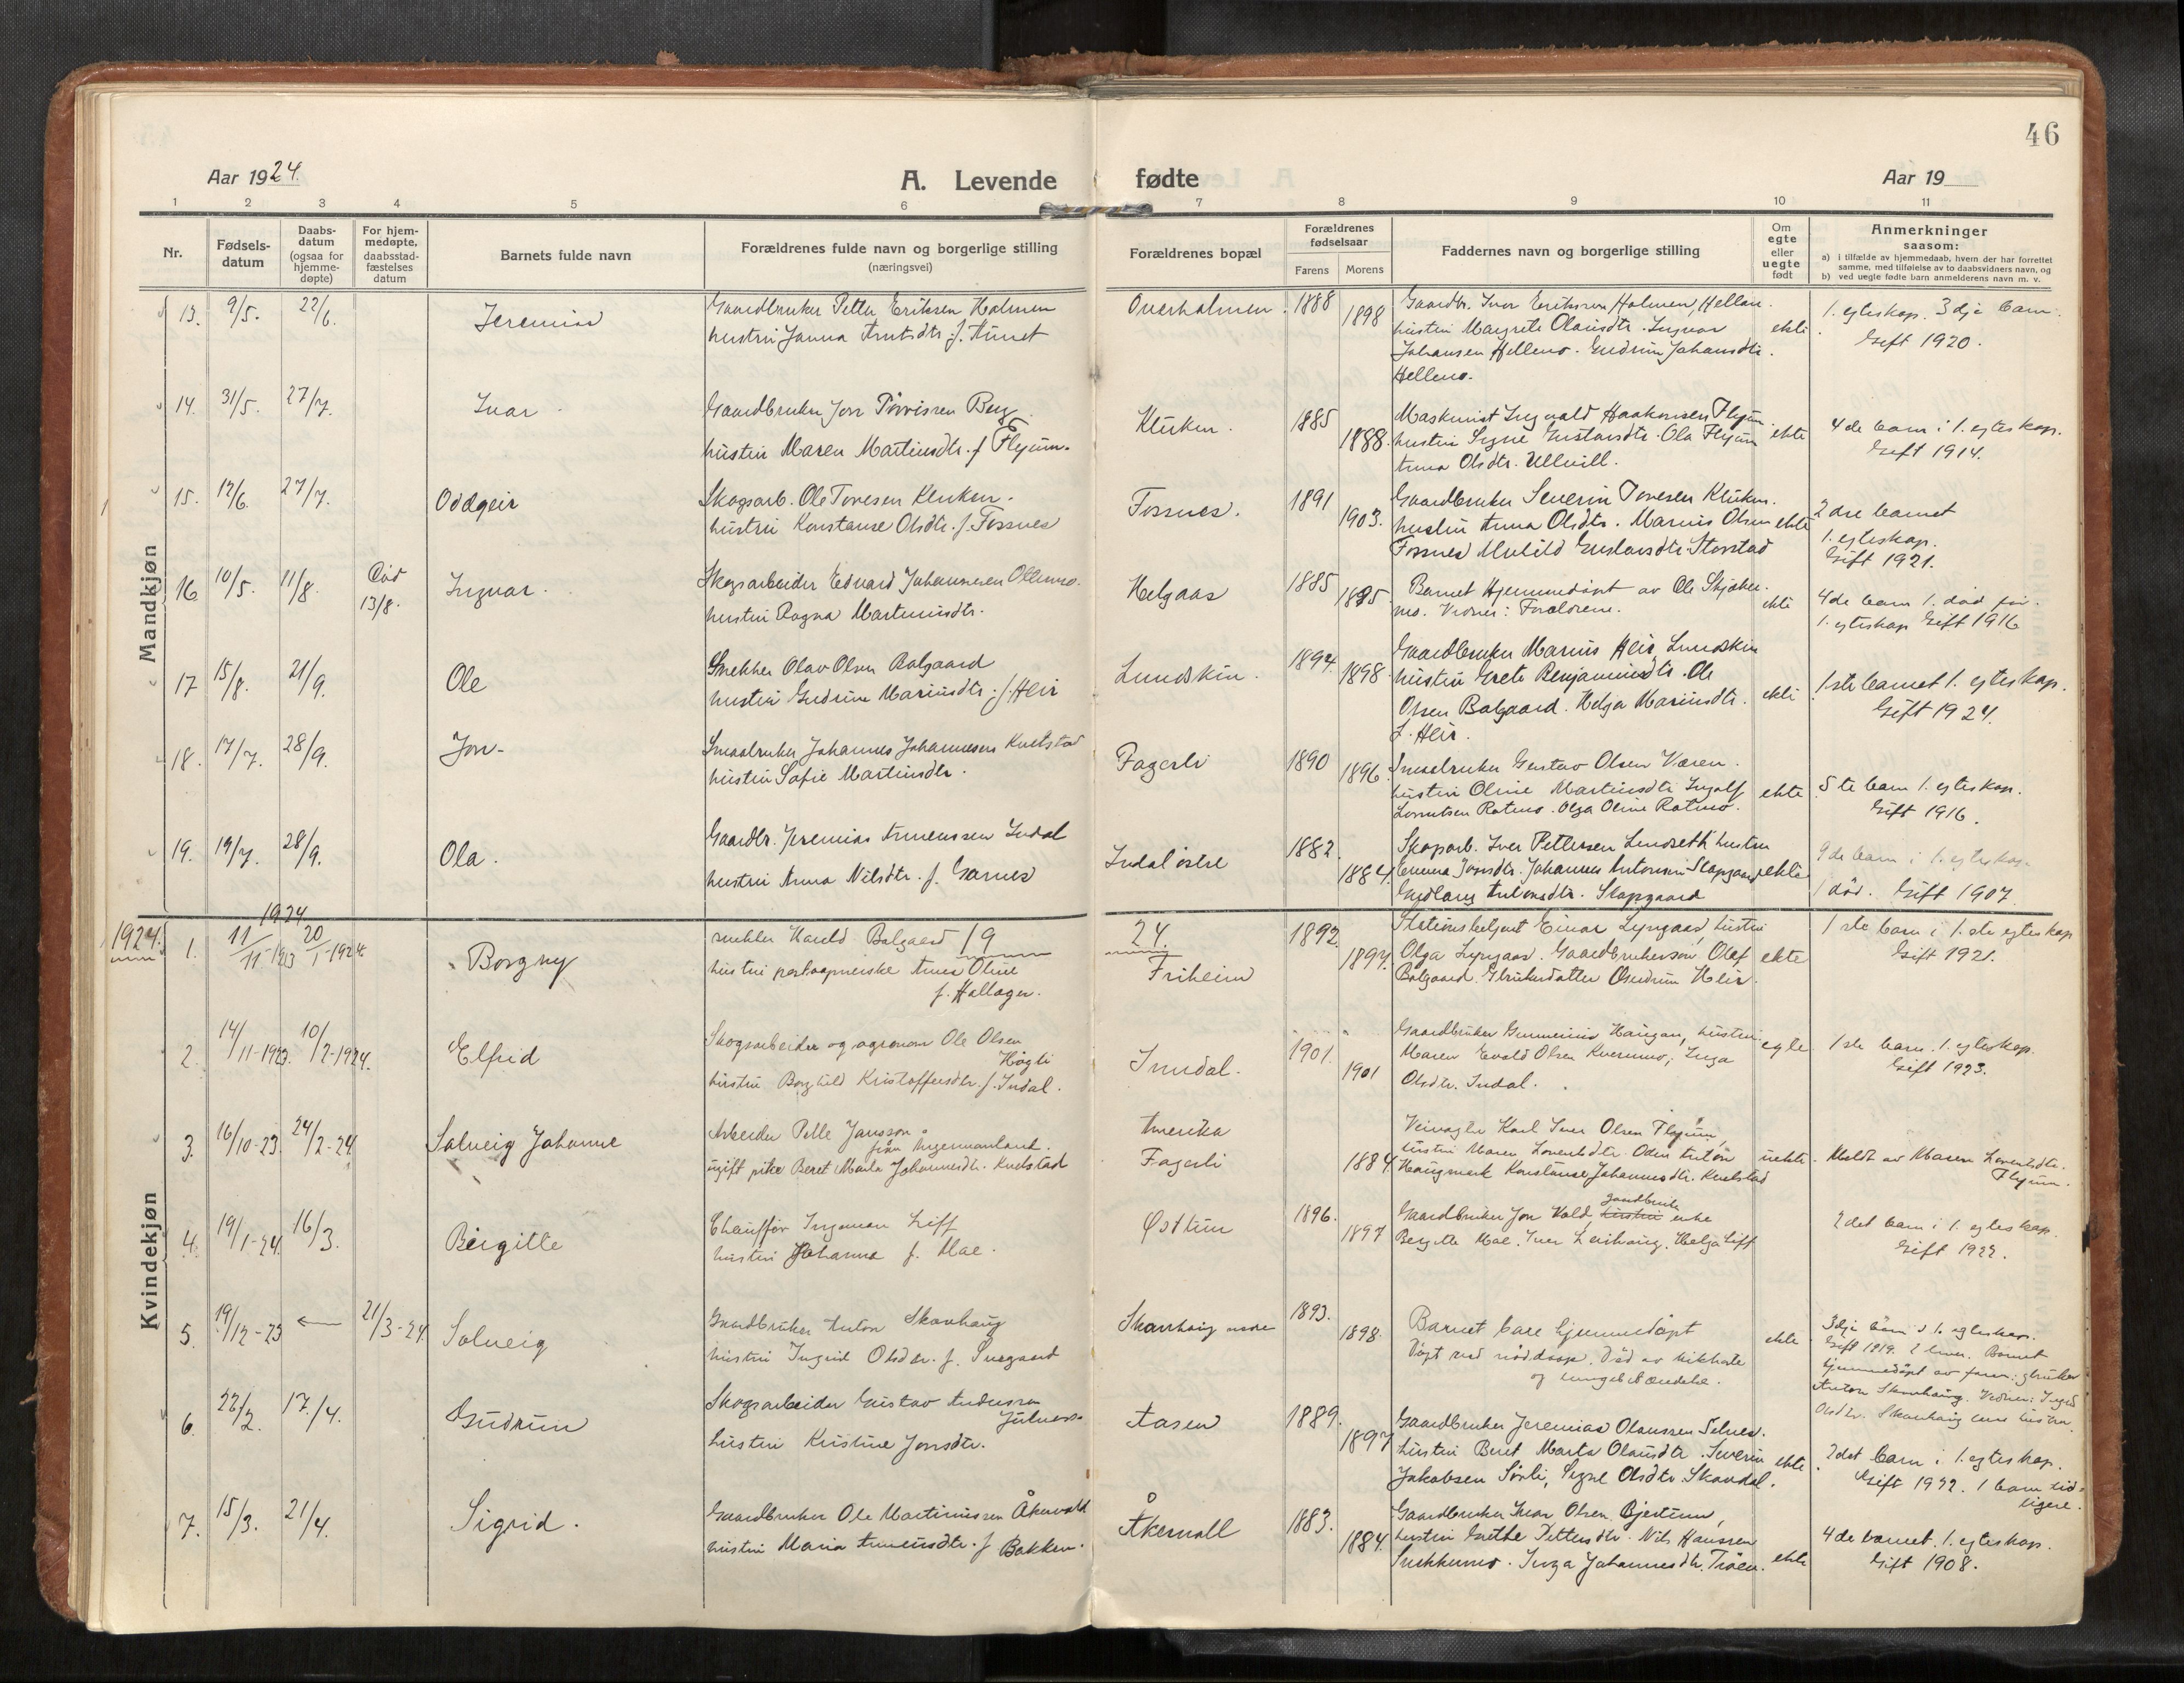 46
Aar 1924.
A. Levende fødte
Aar 19
1 2 3 4 5 6 7 8 9 10 11
Nr.
Fødsels-
datum
Daabs-
datum
(ogsaa for
hjemme-
døpte)
For hjem-
medøpte,
daabsstad-
fæstelses
datum
Barnets fulde navn
Forældrenes fulde navn og borgerlige stilling
(næringsvei)
Forældrenes bopæl
Forældrenes
fødselsaar
Farens Morens
Faddernes navn og borgerlige stilling
Om
egte
eller
uegte
født
Anmerkninger
saasom:
a) i tilfælde av hjemmedaab, hvem der har forrettet
samme, med tilføielse av to daabsvidners navn, og
b) ved uegte fødte barn anmelderens navn m. v.
Mandkjøn
13. 9/5. 22/6. Jeremias
Gaardbruker Petter Eriksen Holmen
hustru Janna
Overholmen. 1888 1898
Gaardbr. Iver Eriksen Holmen, Hellan.
hustru Margrete Olausdtr. Ingvar
Johansen Hellmo. Gudrun Johansdtr.
Hellmo.
ekte
1. egteskap. 3dje barn.
Gift 1920.
14. 31/5. 27/7. Ivar
Gaardbruker Jon Berg
hustru Maren Martinsdtr. f. Flyum.
Kluken. 1885 1888.
Maskinist Ingvald Haakonsen Flyum
hustru Signe Gustavsdtr. Ola Flyum
Anna Olsdtr. Ullvill.
ekte
4de barn i 1. egteskap.
Gift 1914.
15. 12/6. 27/7. Oddgeir
Skogsarb. Ole Tovesen Kluken.
hustru Konstanse Olsdtr. f. Fossnes
Fossnes. 1891 1903.
Gaardbruker Severin Tovesen Kluken.
hustru Anna Olsdtr. Marius Olsen
Fossnes Gustavsdtr. Storstad
ekte
2dre barnet
1. egteskap.
Gift 1921.
16 10/5. 11/8. Død
13/8. Ingvar.
Skogsarbeider Edvard Johannesen
hustru Ragna Martinusdtr.
Helgaas 1885 1895
Barnet hjemmedøpt av Ole
mo. Vidner: Forældrene.
ekte
4de barn 1. død før.
1. egteskap Gift 1916
17 15/8. 21/9. Ole
Snekker Olav Olsen Balgaard
hustru Gudrun Mariusdtr. f. Heir
Lundskin. 1894 1898.
Gaardbruker Marius Heir, Lundskin
hustru Grete Benjaminsdtr. Ole
Olsen Balgaard. Helga Mariusdtr.
f. Heir.
ekte
1ste barnet 1. egteskap.
Gift 1924.
18. 17/7. 28/9. Jon-
Smaabruker Johannes Johannesen Kvelstad
hustru Sofie Martinsdtr.
Fagerli 1890 1896.
Smaabruker Gustav Olsen Væren.
hustru Oline Martinsdtr. Ingolf
Lorentsen Rotmo. Olga Oline Rotmo.
ekte
5te barn 1. egteskap.
Gift 1916.
19. 19/7. 28/9. Ola.
Gaardbr. Jeremias Indal
hustru Anna Nilsdtr. f. Garnes
Indal østre 1882. 1884.
Skogarb. Iver Pettersen Lundseth hustru
Emma Johannes Antonsen Slapgaard
Antonsdtr. Slapgaard
ekte
9de barn i 1. egteskap.
1 død. Gift 1907.
1924.
Kvindekjøn
1924. 1. 11/11-1923 20/1-1924. Borgny
snekker Harald Balgaard
hustru postaapnerske Anna Oline
f. Hallager.
1924.
Friheim 1892. 1897.
Stationsbetjent Einar Lyngaas, hustru
Olga Lyngaas. Gaardbrukersøn Olaf
Balgaard. Gbrukerdatter Gudrun Heir.
ekte
1ste barn i 1.ste egteskap
Gift 1921.
2. 14/11-1923. 10/2-1924. Elfrid
Skogsarbeider og agronom Ole Olsen
Høgli
hustru Borghild Kristoffersdtr. f. Indal.
Inndal. 1901. 1901
Gaardbruker Haugan, hustru
Maren Evald Olsen Kvernmo, Inga
Olsdtr. Indal.
egte
1ste barn. 1. egteskap.
Gift 1923.
3. 16/10-23. 24/2-24 Solveig Johanne
Arbeider Pelle Jansson
från Ångermanland.
ugift pike Beret Marta Johannesdtr. Kvelstad
Amerika
Fagerli 1884.
Veivogter Karl Iver Olsen Flyum,
hustru Maren Lorentsdtr. Odin Anton
Haugmark Konstanse Johannesdtr. Kvelstad
uekte
Meldt av Maren Lorentsdtr.
Flyum.
4. 19/1-24. 16/3. Bergitte
Chauffør Ingeman Liff
hustru Johanna f. Mae.
Østtun 1896. 1897
gaardbruker
Gaardbruker Jon Vold, hustru enke
Bergitte Mae. Iver Leirhaug. Helga Liff
2det barn i 1. egteskap.
Gift 1922.
5. 19/12-23 ← 21/3-24. Solveig
Gaardbruker Anton Skavhaug
hustru Ingrid Olsdtr. f. Suegaard
Skavhaug nedre 1893. 1898.
Barnet bare hjemmedøpt
Døpt ved nøddaap. Død av kikhoste
og
ekte
3dje barn i 1. egteskap.
Gift 1919. 2 lever. Barnet
hjemmedøpt av faren: gbruker
Anton Skavhaug. Vidner: Ingrid
Olsdtr. Skavhaug
6. 22/2. 17./4. Gudrun
Skogsarbeider Gustav Andersen
Julnes
hustru Kristine Jonsdtr.
Aasen 1889. 1897
Gaardbruker Jeremias Olaussen Selnes.
hustru Beret Marta Olausdtr. Severin
Jakobsen Sørli, Signe Olsdtr. Skavdal.
ekte
2det barn i 1. egteskap.
Gift 1922. 1 barn tid-
ligere.
7. 15/3. 21/4. Sigrid.
Gaardbruker Ole Martinussen Åkervold
hustru Maria f. Bakken.
Åkervoll 1883. 1884.
Gaardbruker Ivar Olsen Bjertum,
hustru Grethe Pettersdtr. Nils Hanssen
Inga Johannesdtr. Trøen.
ekte
4de barnet. 1. egteskap.
Gift 1908.